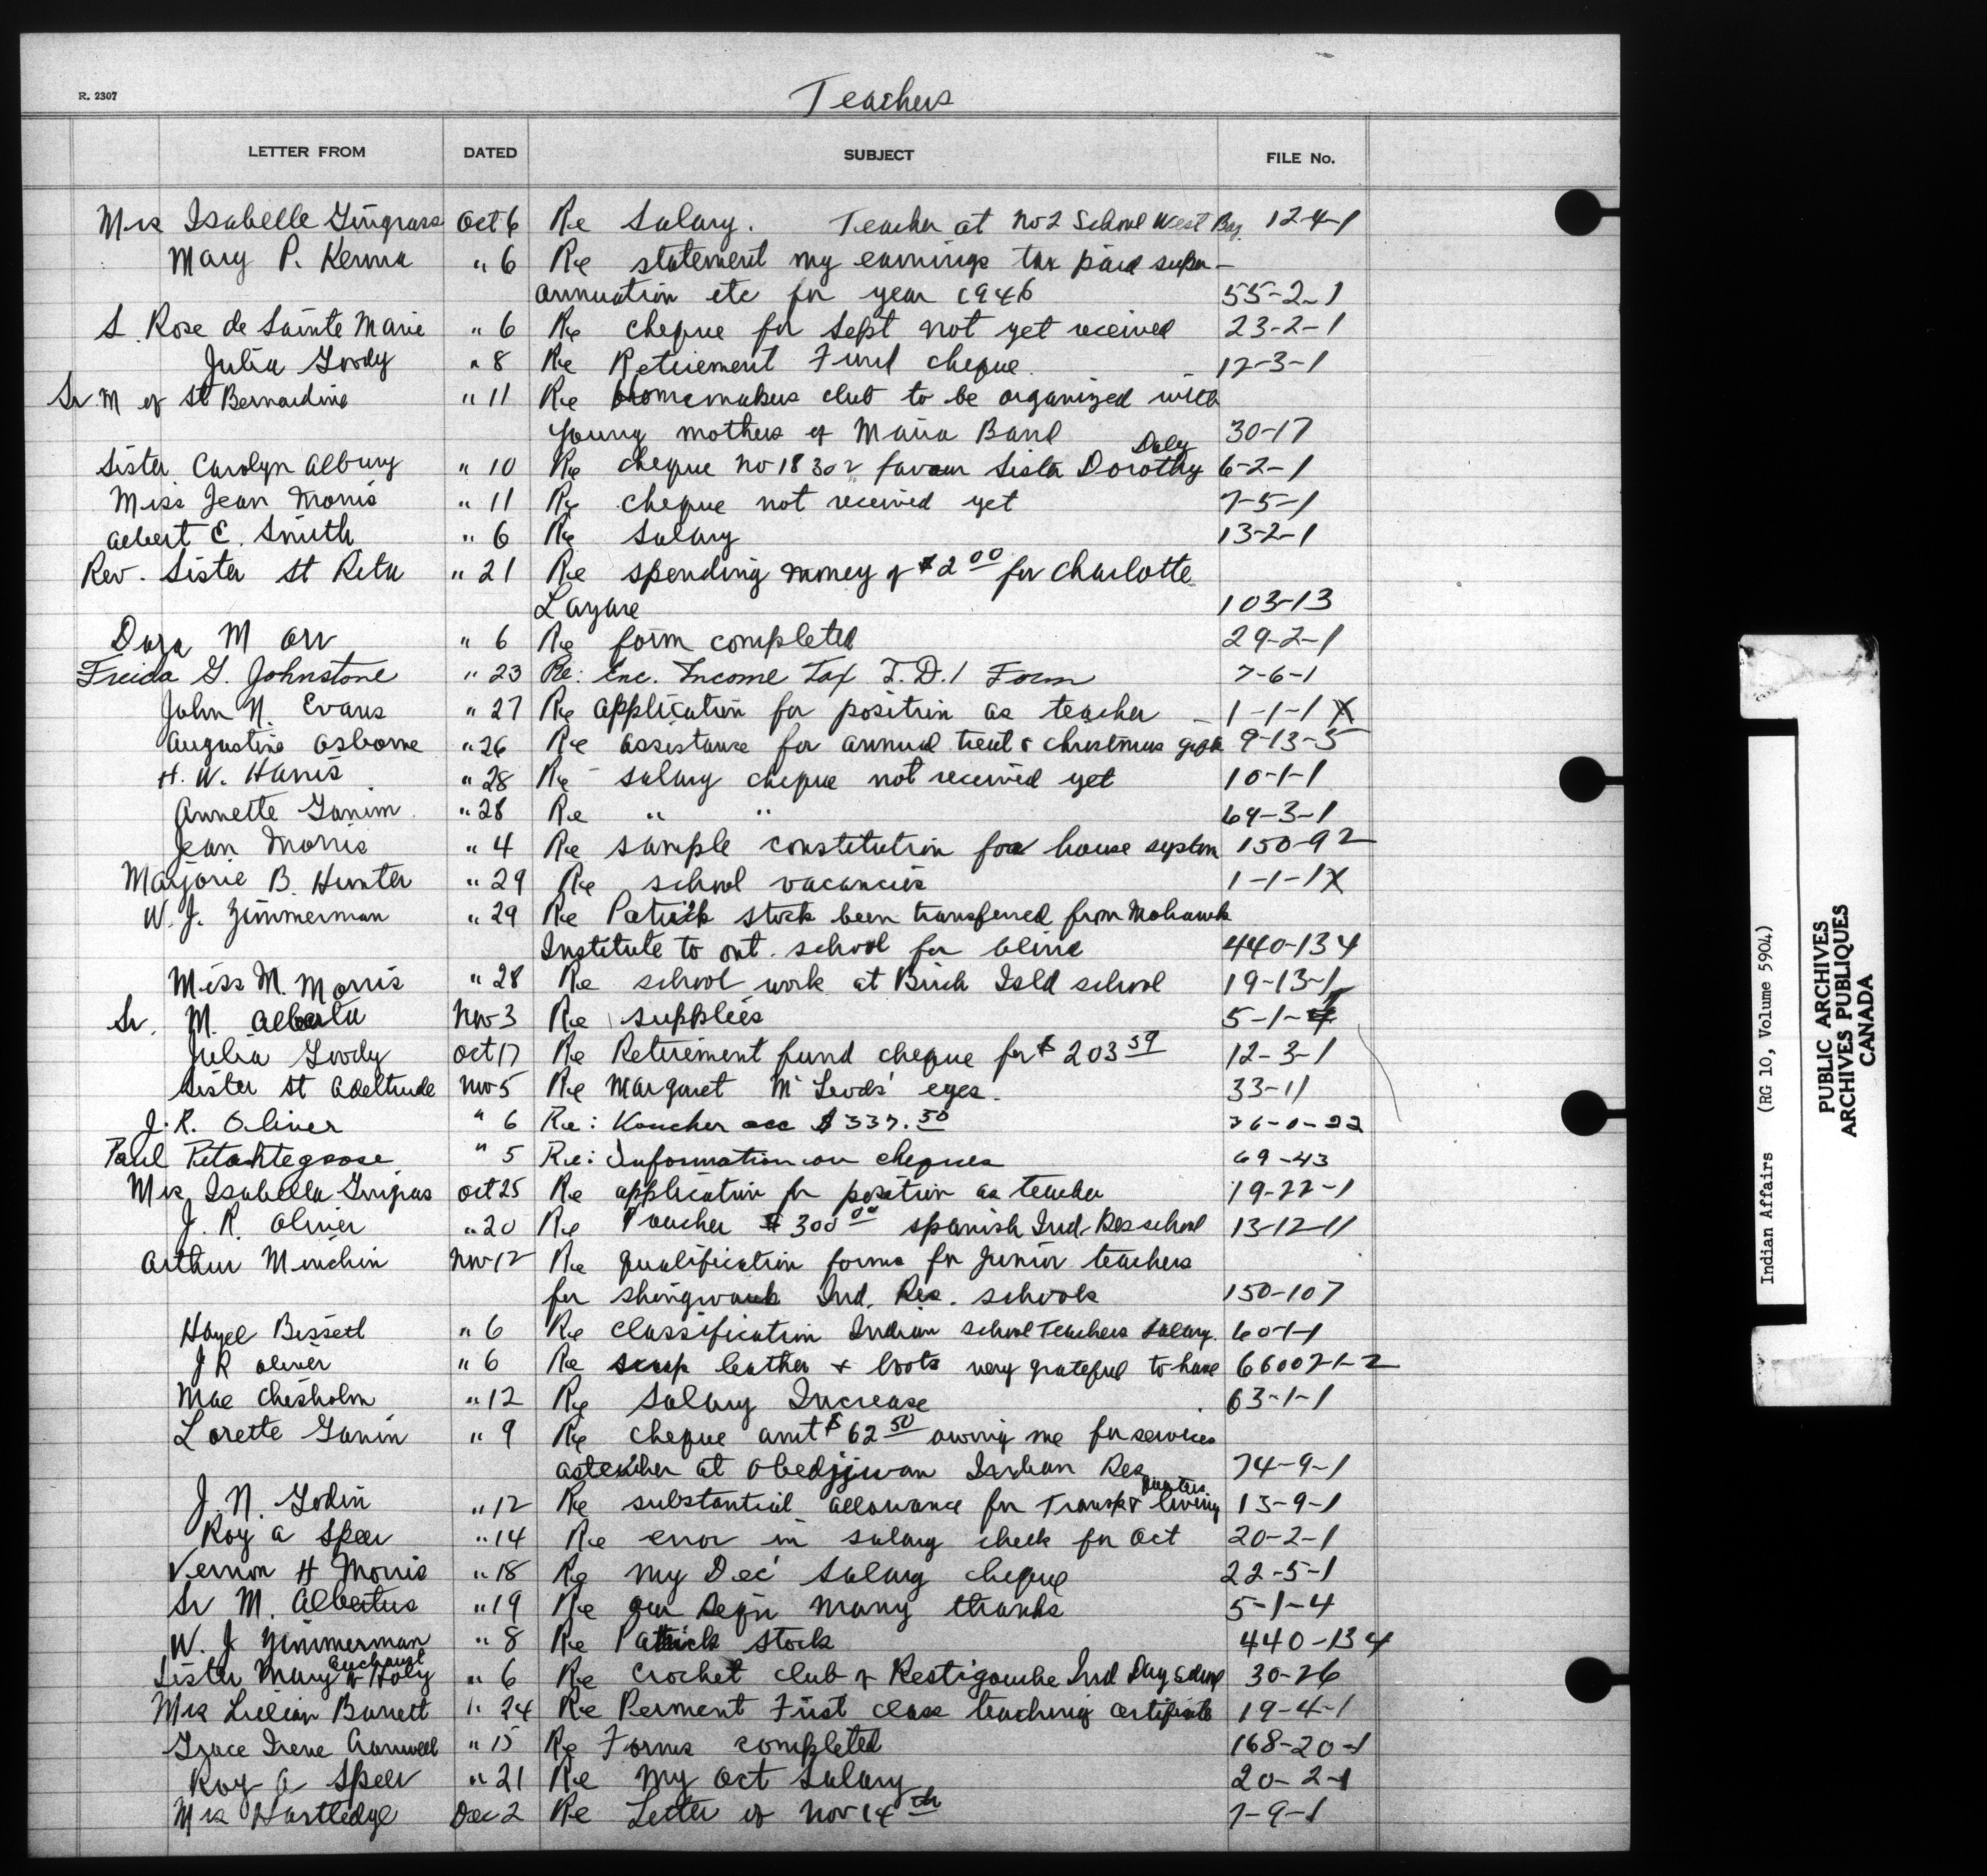 R. 2307
Teachers
LETTER FROM DATED SUBJECT FILE No.
Mrs Isabelle Gingrass Oct 6 Re Salary. Teacher at No 2 School West Bay. 12-4-1
Mary P. Kenna " 6 Re statement my earnings tax paid super-
annuation etc for year 1946 55-2-1
S. Rose de Sainte Marie " 6 Re cheque for Sept not yet received 23-2-1
Julia Goody " 8 Re Retirement Fund cheque. 12-3-1
Sr. M of St Bernardine " 11 Re Homemakers club to be organized with
young mothers of Maria Band 30-17
Daley
Sister Carolyn Albury " 10 Re cheque no 18302 favour Sister Dorothy 6-2-1
Miss Jean Morris " 11 Re cheque not received yet 7-5-1
Albert E. Smith " 6 Re Salary 13-2-1
Rev. Sister St Rita " 21 Re spending money of $2 00 for Charlotte
Lazare 103-13
Dora M Orr " 6 Re form completed 29-2-1
Freida G. Johnstone " 23 Re: Enc. Income Tax T.D.1 Form 7-6-1
John N. Evans " 27 Re application for position as teacher - 1-1-1 X
Augustine Osborne " 26 Re assistance for annual treat & christmas gifts 9-13-5
H. W. Harris " 28 Re salary cheque not received yet 10-1-1
Annette Ganim " 28 Re " " 64-3-1
Jean Morris " 4 Re sample constitution for house system 150-92
Marjorie B. Hunter " 29 Re school vacancies 1-1-1 X
W. J. Zimmerman " 29 Re Patrick Stock been transferred from Mohawk
Institute to ont. school for blind 440-134
Miss M. Morris " 28 Re school work at Birch Isld school 19-13-1
Sr. M. Nov 3 Re supplies 5-1-4
Julia Goody Oct 17 Re Retirement fund cheque for $203 59 12-3-1
Sister St Adeltrude Nov 5 Re Margaret McLeods' eyes. 33-11
J. R. Oliver " 6 Re: Voucher acc $337.50
Paul " 5 Re: Information on cheques 69-43
Mrs Isabella Gingras Oct 25 Re application for position as teacher 19-22-1
J. R. Oliver " 20 Re Voucher $300 00 spanish Ind. Res school 13-12-11
Arthur Minchin Nov 12 Re qualification forms for junior teachers
for shingwauk Ind. Res. schools 150-107
Hazel Bissett " 6 Re classification Indian school Teachers Salary. 60-1-1
J R Oliver " 6 Re scrap leather & boots very grateful to have 66007-1-2
Mae Chisholm " 12 Re Salary Increase 63-1-1
Lorette Ganin " 9 Re cheque amt $62 50 owing me for services
as teacher at Obedjiwan Indian Res 74-9-1
quarters
J. N. Godin " 12 Re substantial allowance for Transp & living 13-9-1
Roy A Speer " 14 Re error in salary check for Oct 20-2-1
Vernon H Morris " 18 Re my Dec' Salary cheque 22-5-1
Sr M. Albertus " 19 Re our Reqn many thanks 5-1-4
W. J Zimmerman " 8 Re Patrick Stock 440-134
Eucharist
Sister Mary of Holy " 6 Re Crochet club of Restigouche Ind Day school 30-26
Mrs Lillian Barrett " 24 Re Perment First class teaching certificate 19-4-1
Grace Irene " 15 Re Forms completed 168-20-1
Roy A Speer " 21 Re My Oct Salary 20-2-1
Mrs Hartledge Dec 2 Re Letter of Nov 14 th 7-9-1
Indian Affairs (RG 10, Volume 5904)
PUBLIC ARCHIVES
ARCHIVES PUBLIQUES
CANADA